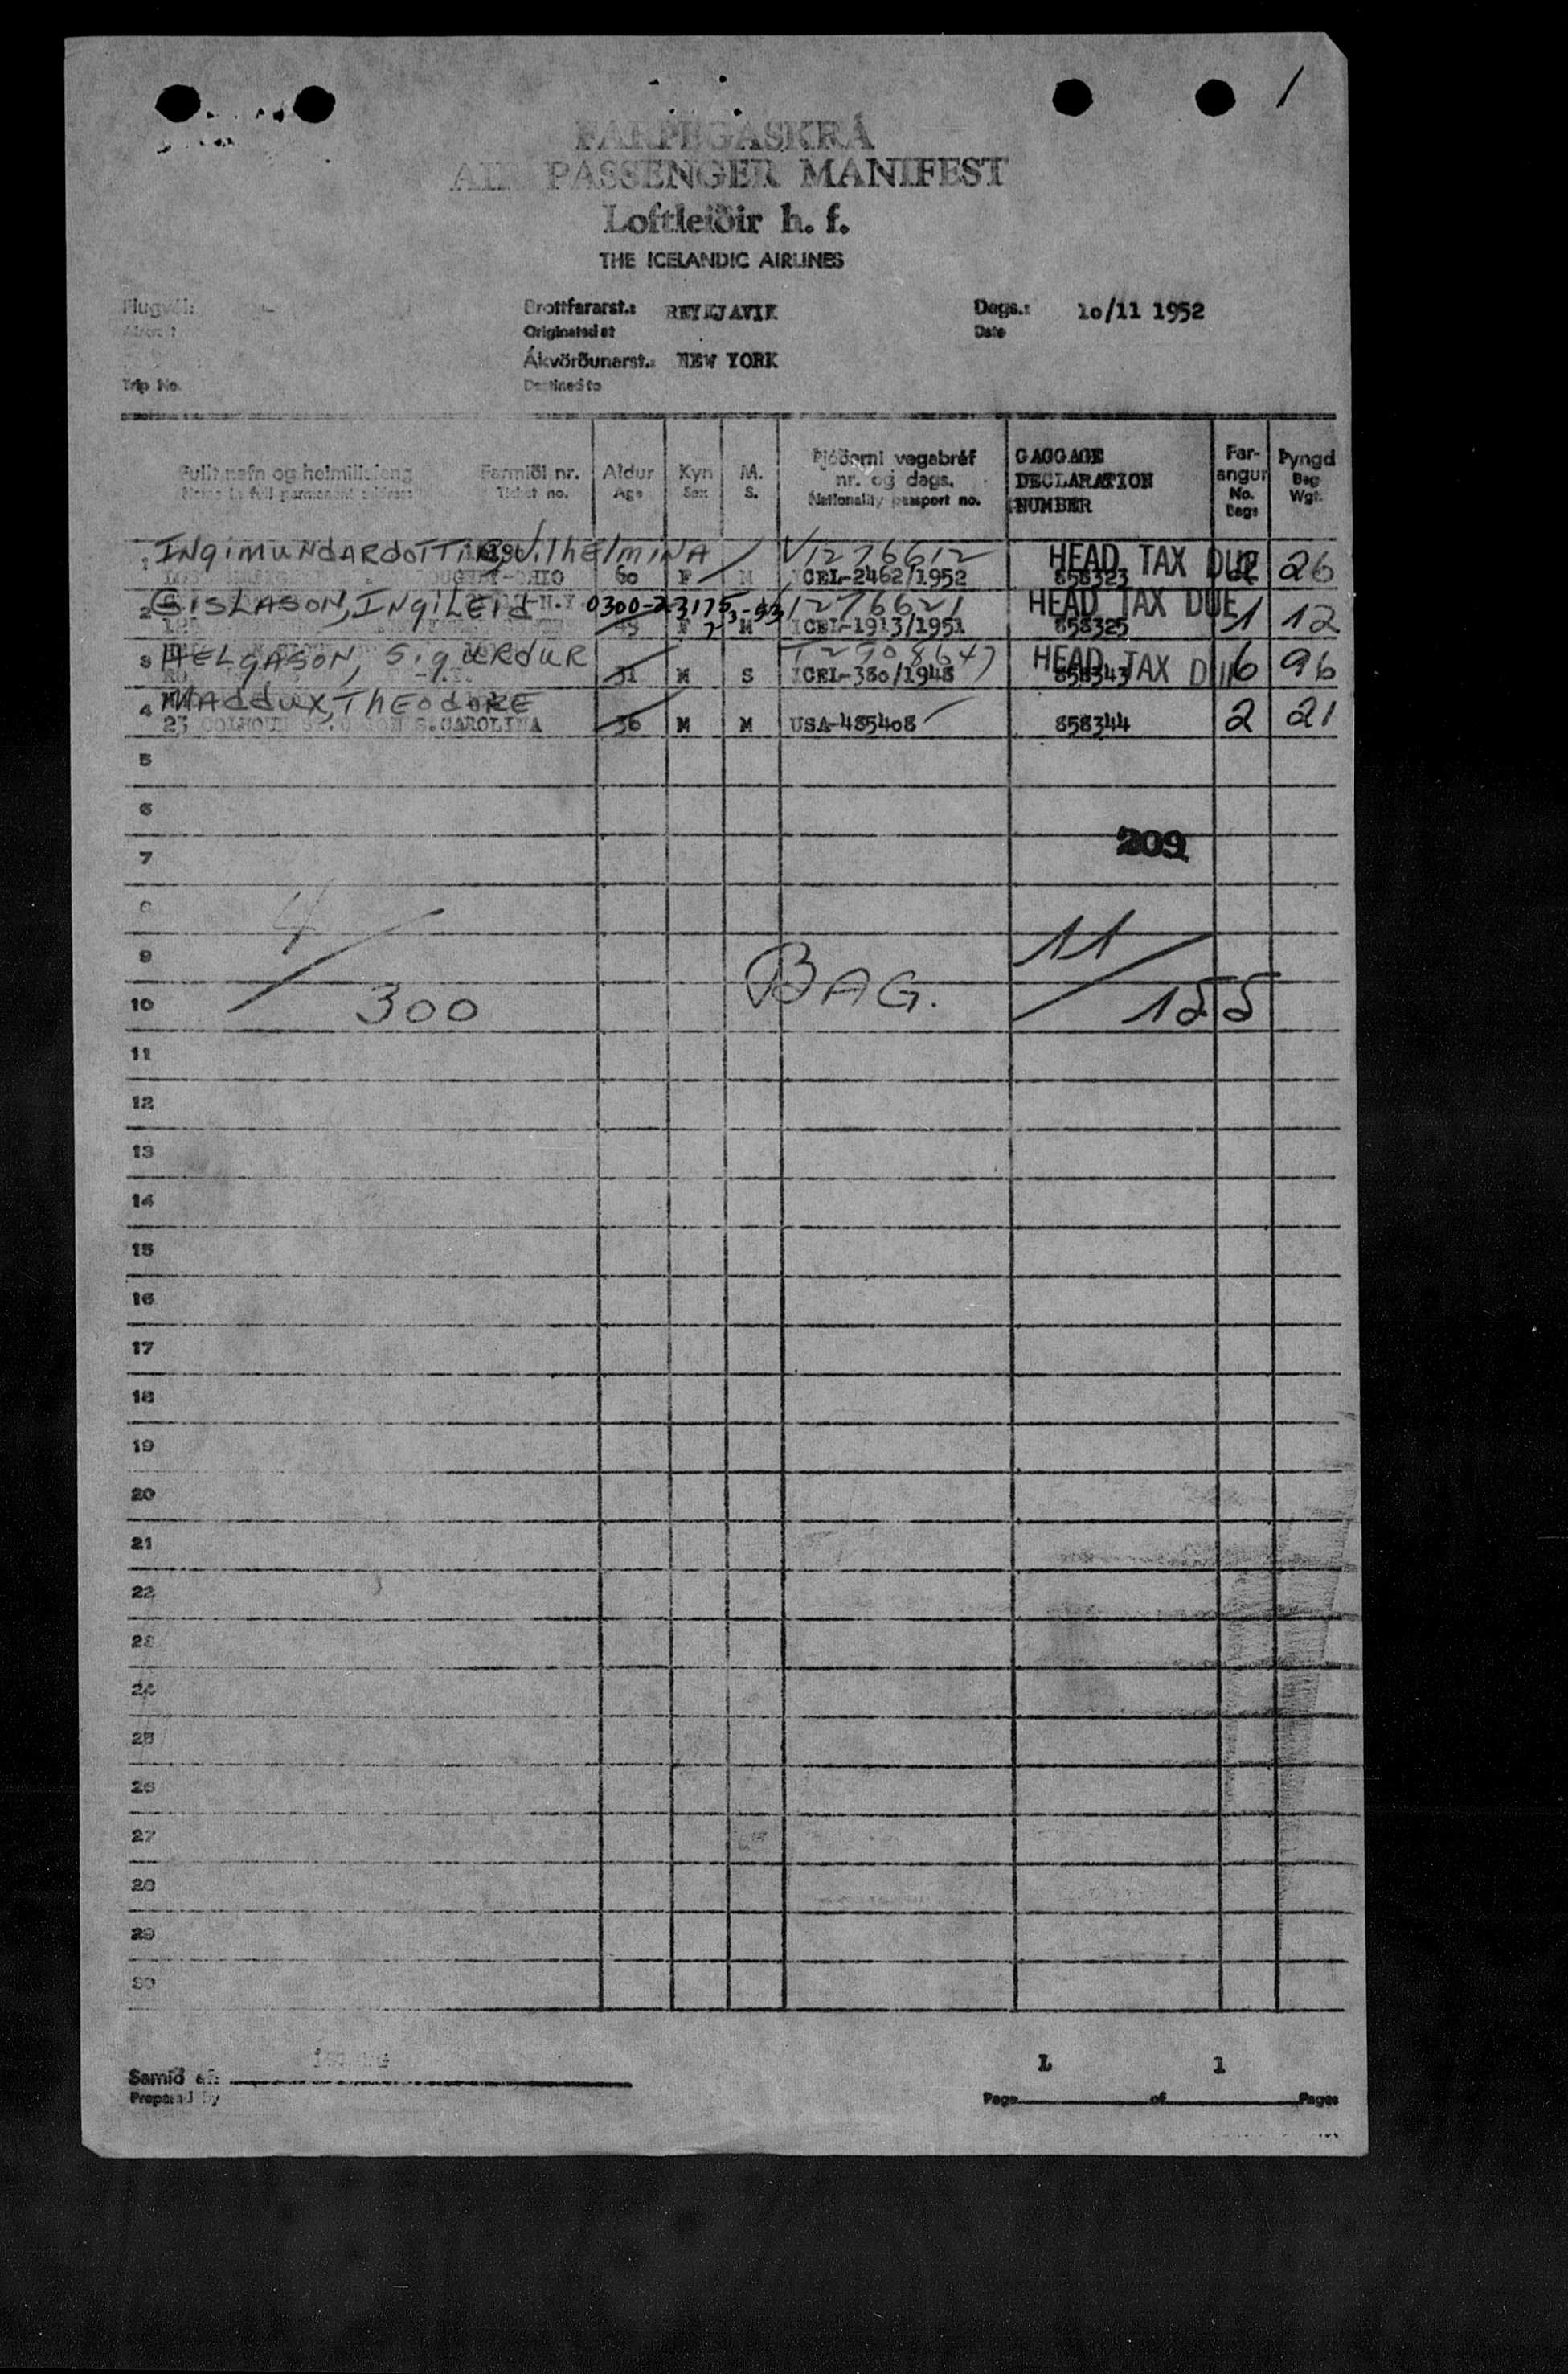 1
FARÞEGASKRÁ
AIR PASSENGER MANIFEST
Loftleiðir h. f.
THE ICELANDIC AIRLINES
Flugvél: Brottfararst.: REYKJAVIK Dags.: 10/11 1952
Aircraft Originated at Date
Ákvörðunarst.: NEW YORK
Trip No. Destined to
Fullt nafn og heimilisfang Farmiði nr. Aldur Kyn M. Þjóðerni vegabréf GAGGAGE Far- Þyngd
Name in full permanent address Ticket no. Age Sex S. nr. og dags. DECLARATION angur Bag
Nationality passport no. NUMBER No. Wgt.
Bags
1 INgiMUNdARdOTTIR, VilhElMiNA V1276612 HEAD TAX DUE 26
OHIO 60 F M ICEL-2462/1952 858323
2 GISLASON, INgiLEId 0300-23175 1276621 HEAD TAX DUE 1 12
F M ICEL-1913/1951 858325
3 HELgASON, SigURdUR HEAD TAX DUE 6 96
31 M S ICEL-380/1948 858343
4 MAddUX, ThEOdORE 2 21
23 S.CAROLINA 36 M M USA-485408 858344
5
6
209
7
8
4
9 11
10 300 BAG. 155
11
12
13
14
15
16
17
18
19
20
21
22
23
24
25
26
27
28
29
30
Samið af:
Prepared by
L 1
Page of Pages